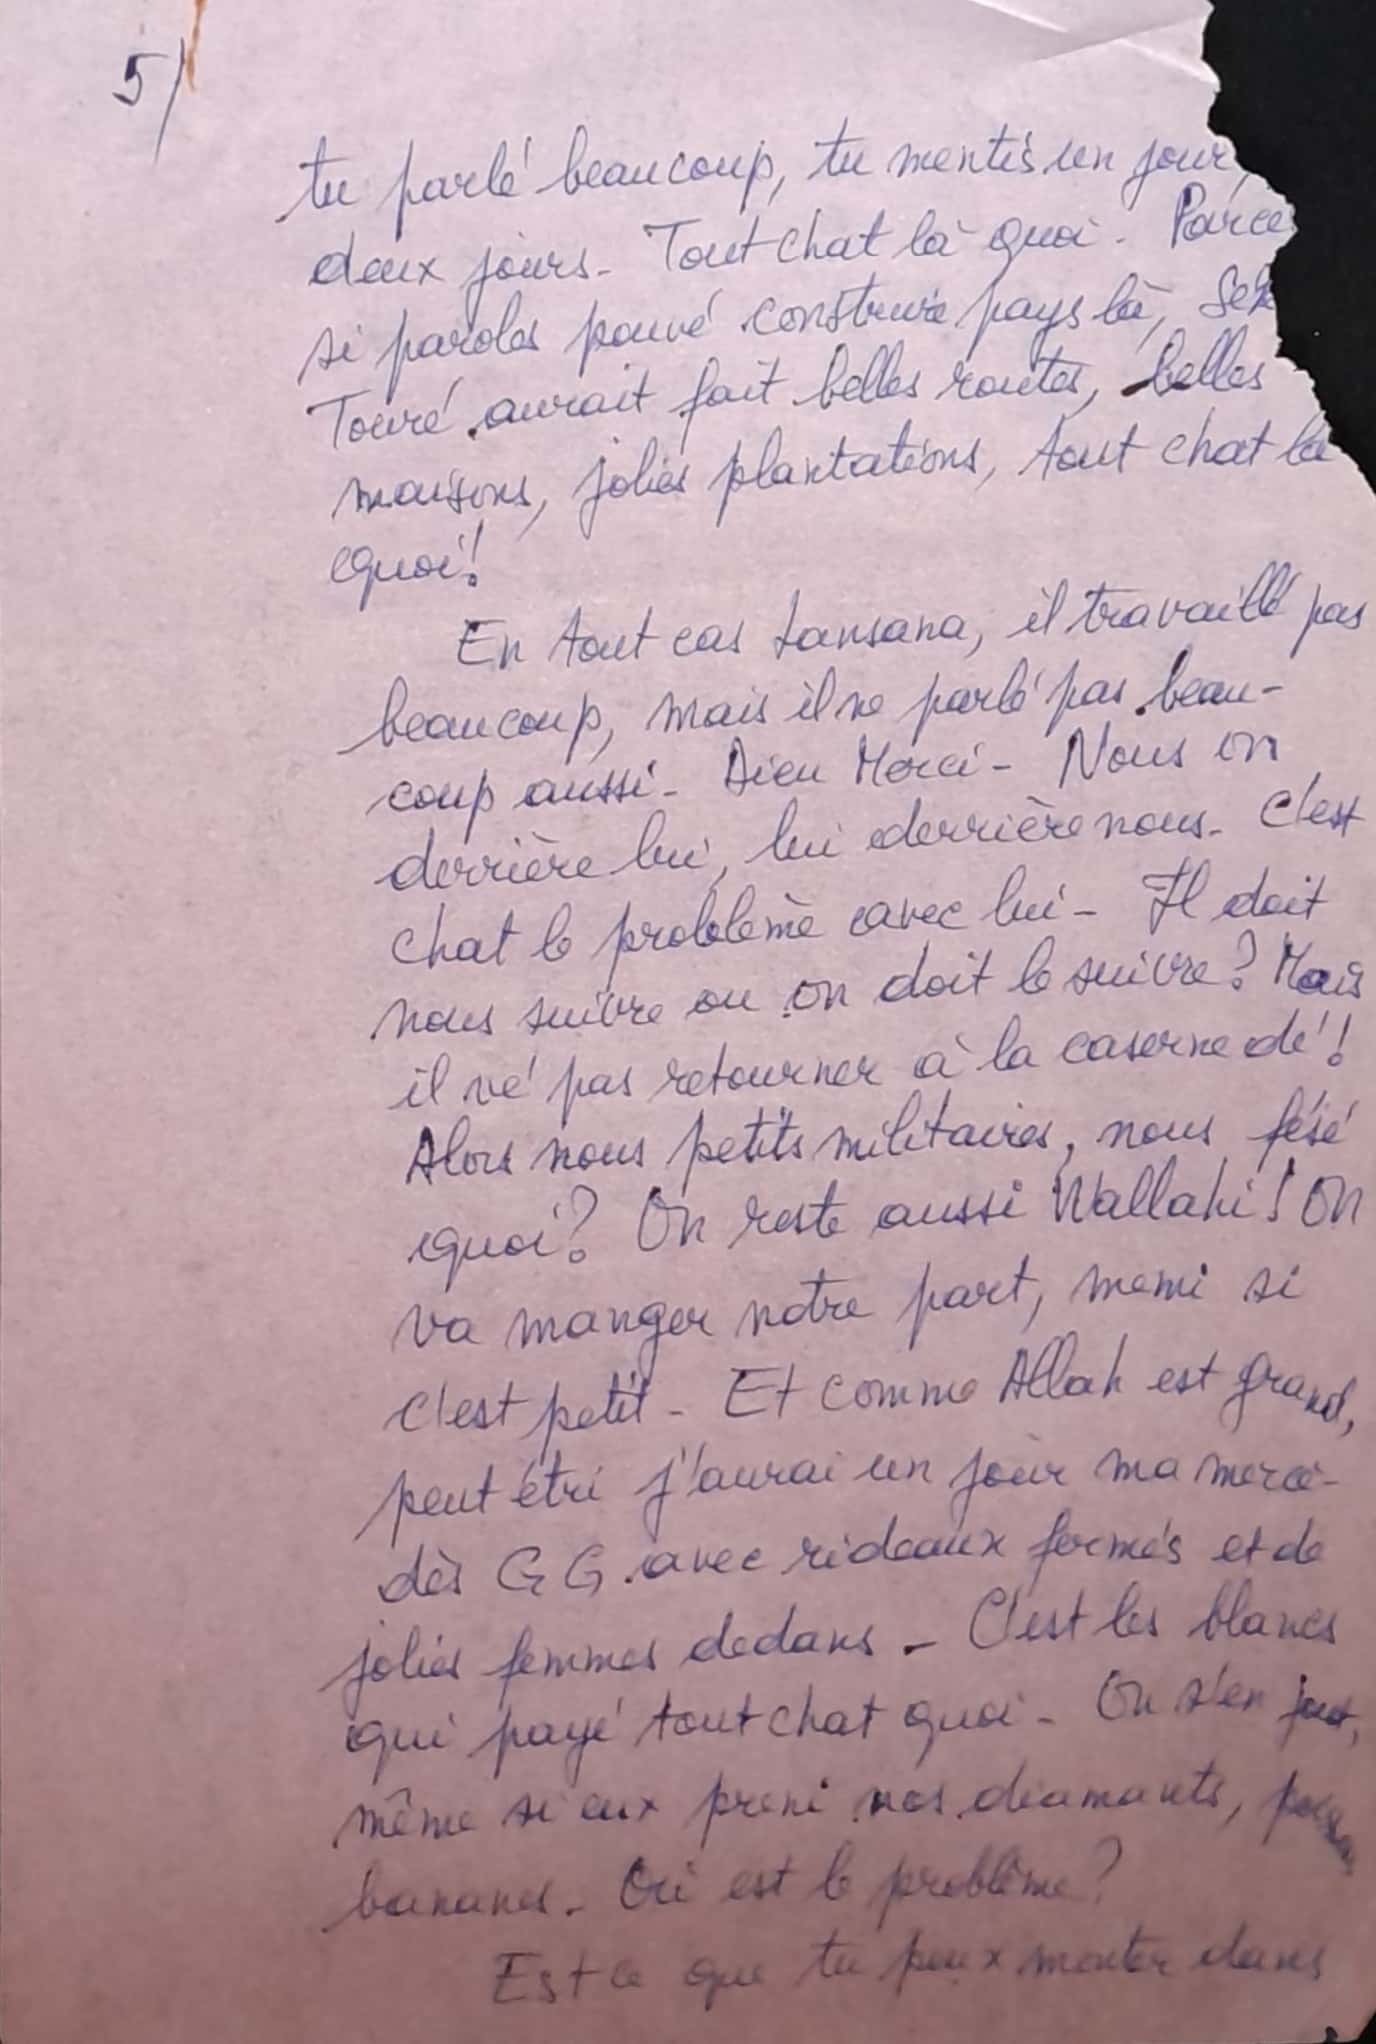 5/
tu parlé beaucoup, tu mentis un jour,
deux jours - Tout chat là quoi - Parce
si paroles pouvé construire pays là, Sek
Touré aurait fait belles routes, belles
maisons, jolies plantations, tout chat là
quoi!
En tout cas Lansana, il travaillé pas
beaucoup, mais il ne parlé pas beau-
coup aussi - Dieu Merci - Nous on
derrière lui, lui derrière nous - C'est
chat le problème avec lui - Il doit
nous suivre ou on doit le suivre? Mais
il vé pas retourner à la caserne dé!
Alors nous petits militaires, nous fésé
quoi? On reste aussi Wallahi! On
va manger notre part, memi si
c'est petit - Et comme Allah est grand,
peut étri j'aurai un jour ma merce-
dès GG avec rideaux fermés et de
jolies femmes dedans - C'est les blancs
qui payé tout chat quoi - On s'en fout,
même si eux preni nos diamants,
bananes - Où est le problème?
Est ce que tu peux monter dans